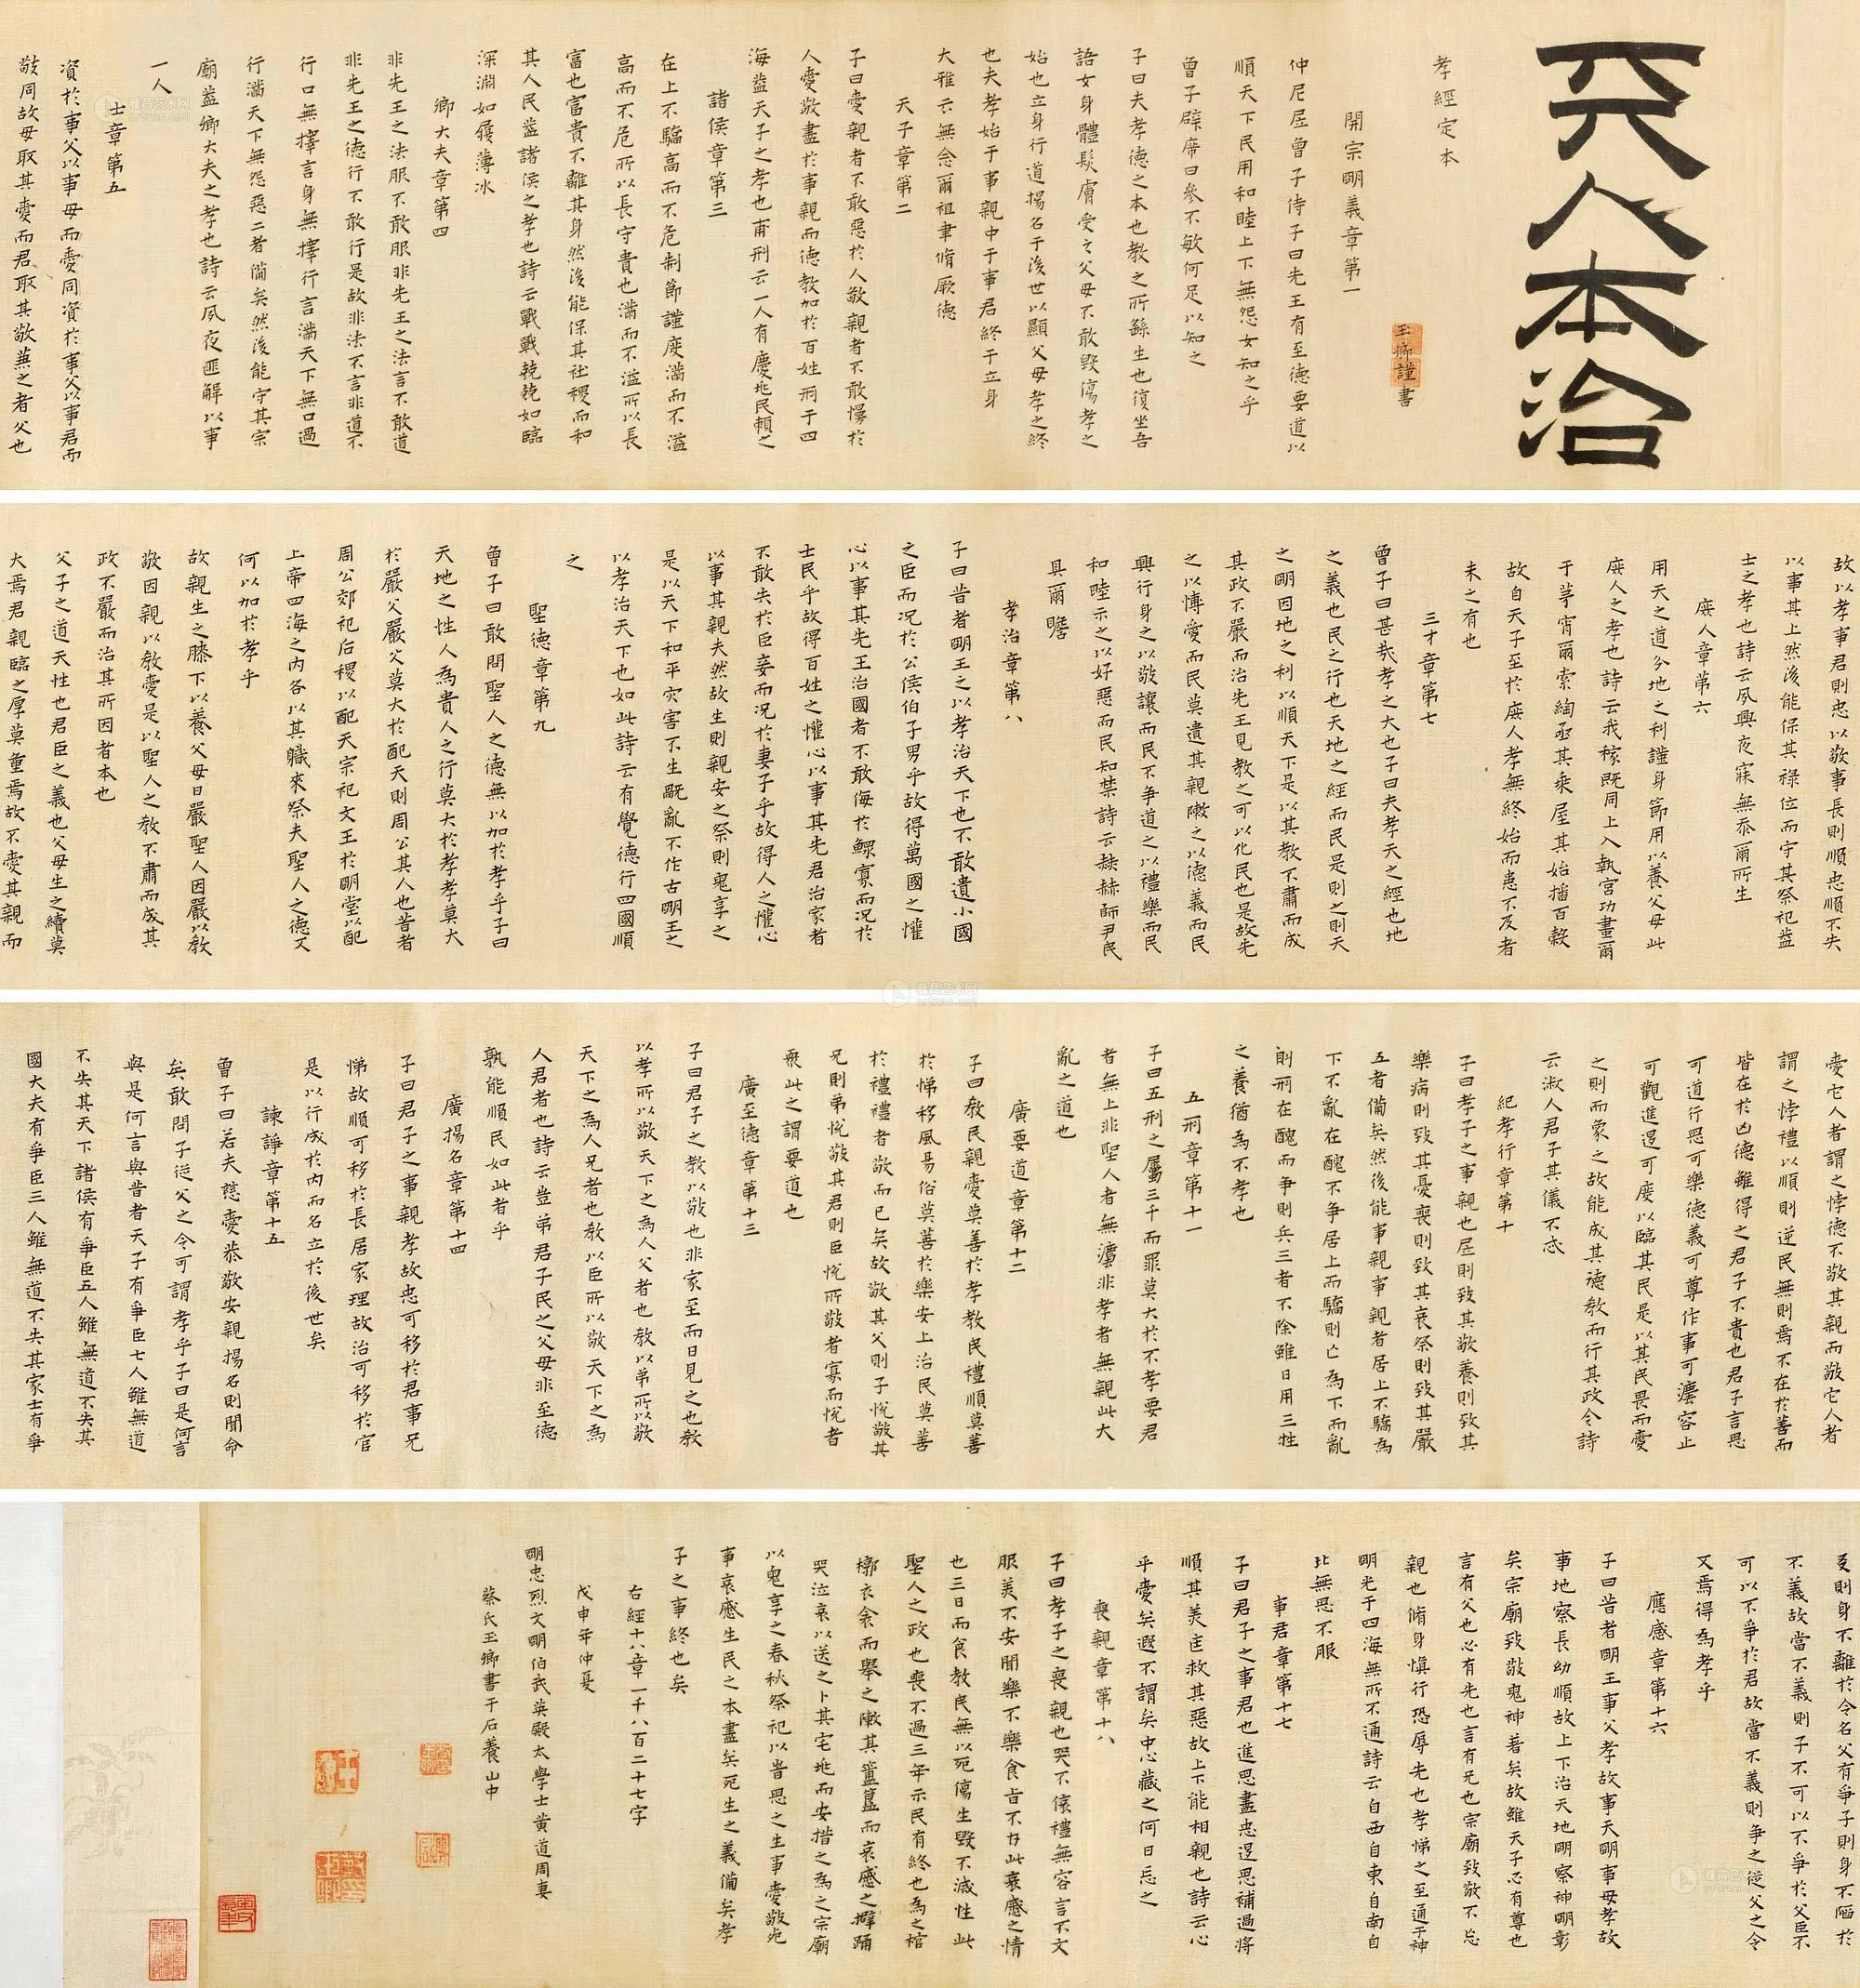 天人本治
孝經定本
玉卿謹書
開宗明義章第一
仲尼凥曾子侍子曰先王有至德要道以
順天下民用和睦上下無怨女知之乎
曾子辟席曰參不敏何足以知之
子曰夫孝德之本也教之所繇生也復坐吾
語女身體髮膚受之父母不敢毀傷孝之
始也立身行道揚名于後世以顯父母孝之終
也夫孝始于事親中于事君終于立身
大雅云無念爾祖聿脩厥德
天子章第二
子曰愛親者不敢惡於人敬親者不敢慢於
人愛敬盡於事親而德教加於百姓刑于四
海蓋天子之孝也甫刑云一人有慶兆民賴之
諸侯章第三
在上不驕高而不危制節謹度滿而不溢
高而不危所以長守貴也滿而不溢所以長
守富也富貴不離其身然後能保其社稷而和
其人民蓋諸侯之孝也詩云戰戰兢兢如臨
深淵如履薄冰
卿大夫章第四
非先王之法服不敢服非先王之法言不敢道
非先王之德行不敢行是故非法不言非道不
行口無擇言身無擇行言滿天下無口過
行滿天下無怨惡三者備矣然後能守其宗
廟蓋卿大夫之孝也詩云夙夜匪解以事
一人
士章第五
資於事父以事母而愛同資於事父以事君而
敬同故母取其愛而君取其敬兼之者父也
故以孝事君則忠以敬事長則順忠順不失
以事其上然後能保其祿位而守其祭祀蓋
士之孝也詩云夙興夜寐無忝爾所生
庶人章第六
用天之道分地之利謹身節用以養父母此
庶人之孝也詩云我稼既同上入執宮功晝爾
于茅宵爾索綯亟其乘屋其始播百穀
故自天子至於庶人孝無終始而患不及者
未之有也
三才章第七
曾子曰甚哉孝之大也子曰夫孝天之經也地
之義也民之行也天地之經而民是則之則天
之明因地之利以順天下是以其教不肅而成
其政不嚴而治先王見教之可以化民也是故先
之以博愛而民莫遺其親陳之以德義而民
興行身之以敬讓而民不爭道之以禮樂而民
和睦示之以好惡而民知禁詩云赫赫師尹民
具爾瞻
孝治章第八
子曰昔者明王之以孝治天下也不敢遺小國
之臣而況於公侯伯子男乎故得萬國之懽
心以事其先王治國者不敢侮於鰥寡而況於
士民乎故得百姓之懽心以事其先君治家者
不敢失於臣妾而況於妻子乎故得人之懽心
以事其親夫然故生則親安之祭則鬼享之
是以天下和平灾害不生既亂不作古明王之
以孝治天下也如此詩云有覺德行四國順
之
聖德章第九
曾子曰敢問聖人之德無以加於孝乎子曰
天地之性人為貴人之行莫大於孝孝莫大
於嚴父嚴父莫大於配天則周公其人也昔者
周公郊祀后稷以配天宗祀文王於明堂以配
上帝四海之內各以其職來祭夫聖人之德又
何以加於孝乎
故親生之膝下以養父母日嚴聖人因嚴以教
敬因親以教愛是以聖人之教不肅而成其
政不嚴而治其所因者本也
父子之道天性也君臣之義也父母生之續莫
大焉君親臨之厚莫重焉故不愛其親而
愛它人者謂之悖德不敬其親而敬它人者
謂之悖禮以順則逆民無則焉不在於善而
皆在於凶德雖得之君子不貴也君子言思
可道行思可樂德義可尊作事可灋容止
可觀進退可度以臨其民是以其民畏而愛
之則而象之故能成其德教而行其政令詩
云淑人君子其儀不忒
紀孝行章第十
子曰孝子之事親也凥則致其敬養則致其
樂病則致其憂喪則致其哀祭則致其嚴
五者備矣然後能事親事親者居上不驕為
下不亂在醜不爭居上而驕則亡為下而亂
則刑在醜而爭則兵三者不除雖日用三牲
之養猶為不孝也
五刑章第十一
子曰五刑之屬三千而罪莫大於不孝要君
者無上非聖人者無灋非孝者無親此大
亂之道也
廣要道章第十二
子曰教民親愛莫善於孝教民禮順莫善
於悌移風易俗莫善於樂安上治民莫善
於禮禮者敬而已矣故敬其父則子悅敬其
兄則弟悅敬其君則臣悅所敬者寡而悅者
眾此之謂要道也
廣至德章第十三
子曰君子之教以敬也非家至而日見之也教
以孝所以敬天下之為人父者也教以弟所以敬
天下之為人兄者也教以臣所以敬天下之為
人君者也詩云豈弟君子民之父母非至德
孰能順民如此者乎
廣揚名章第十四
子曰君子之事親孝故忠可移於君事兄
悌故順可移於長居家理故治可移於官
是以行成於內而名立於後世矣
諫諍章第十五
曾子曰若夫慈愛恭敬安親揚名則聞命
矣敢問子從父之令可謂孝乎子曰是何言
與是何言與昔者天子有爭臣七人雖無道
不失其天下諸侯有爭臣五人雖無道不失其
國大夫有爭臣三人雖無道不失其家士有爭
友則身不離於令名父有爭子則身不陷於
不義故當不義則子不可以不爭於父臣不
可以不爭於君故當不義則爭之從父之令
又焉得為孝乎
應感章第十六
子曰昔者明王事父孝故事天明事母孝故
事地察長幼順故上下治天地明察神明彰
矣宗廟致敬鬼神著矣故雖天子必有尊也
言有父也必有先也言有兄也宗廟致敬不忘
親也脩身慎行恐辱先也孝悌之至通于神
明光于四海無所不通詩云自西自東自南自
北無思不服
事君章第十七
子曰君子之事君也進思盡忠退思補過將
順其美匡救其惡故上下能相親也詩云心
乎愛矣遐不謂矣中心藏之何日忘之
喪親章第十八
子曰孝子之喪親也哭不偯禮無容言不文
服美不安聞樂不樂食旨不甘此哀慼之情
也三日而食教民無以死傷生毀不滅性此
聖人之政也喪不過三年示民有終也為之棺
槨衣衾而舉之陳其簠簋而哀慼之擗踊
哭泣哀以送之卜其宅兆而安措之為之宗廟
以鬼享之春秋祭祀以昔思之生事愛敬死
事哀慼生民之本盡矣死生之義備矣孝
子之事終也矣
右經十八章一千八百二十七字
戊申年仲夏
明忠烈文明伯武英殿太學士黃道周妻
蔡氏玉卿書于石養山中